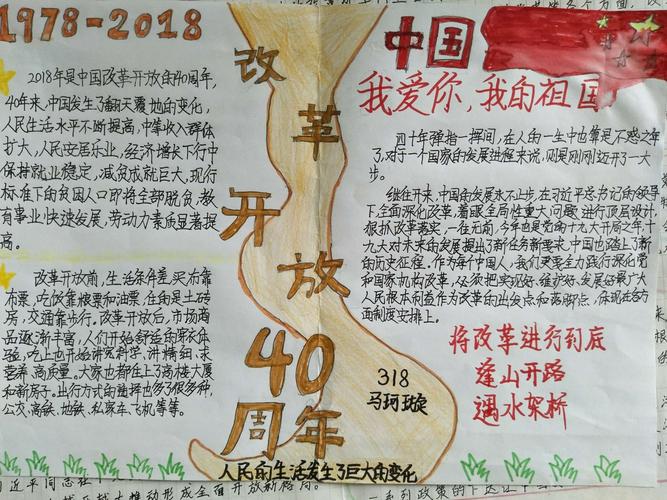 1978-2018
2018年是中国改革开放的40周年,
40年来,中国发生了翻天覆地的变化,
人民生活水平不断提高,中等收入群体
扩大,人民安居乐业,经济增长下行中
保持就业稳定,减贫成就巨大,现行
标准下的贫困人口即将全部脱贫,教
育事业快速发展,劳动力素质显著提
高。
改革开放前,生活条件差,买布靠
布票,吃饭靠粮票和油票,住的是土砖
房,交通靠步行。改革开放后,市场商
品逐渐丰富,人们开始舒适的穿衣体
验,吃上也开始讲究科学、讲精细、求
营养、高质量,大家也都住上了高楼大厦
和新房子。出行方式的选择也多了很多种,
公交、高铁、地铁、私家车、飞机等等。
改革开放
40
周年
318
马珂璇
人民的生活发生了巨大的变化
中国
我爱你,我的祖国
四十年弹指一挥间,在人的一生中也算是不惑之年
了,对于一个国家的发展进程来说,则更刚刚迈开了一大
步。
继往开来,中国的发展永不止步,在习近平总书记的领导
下,全面深化改革,着眼全局性重大问题进行顶层设计,
狠抓改革落实,一往无前,今年也是党的十九大开局之年,十
九大对未来的发展提出了新任务新要求,中国也踏上了新
的历史征程。作为每个中国人,我们更须全力践行深化党
和国家机构改革,必须把实现好、维护好、发展好最广大
人民根本利益作为改革的出发点和落脚点,体现在各方
面制度安排上。
将改革进行到底
逢山开路
遇水架桥